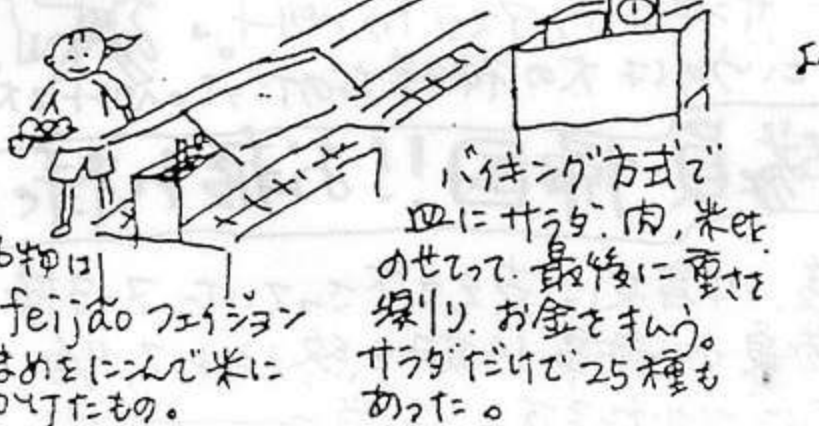 バイキング方式で
皿にサラダ、肉、米etc.
のせてって、最後に重さを
測り、お金を払う。
サラダだけで25種も
あった。
物は
feijão フェイジョン
まめをにこんで米に
かけたもの。